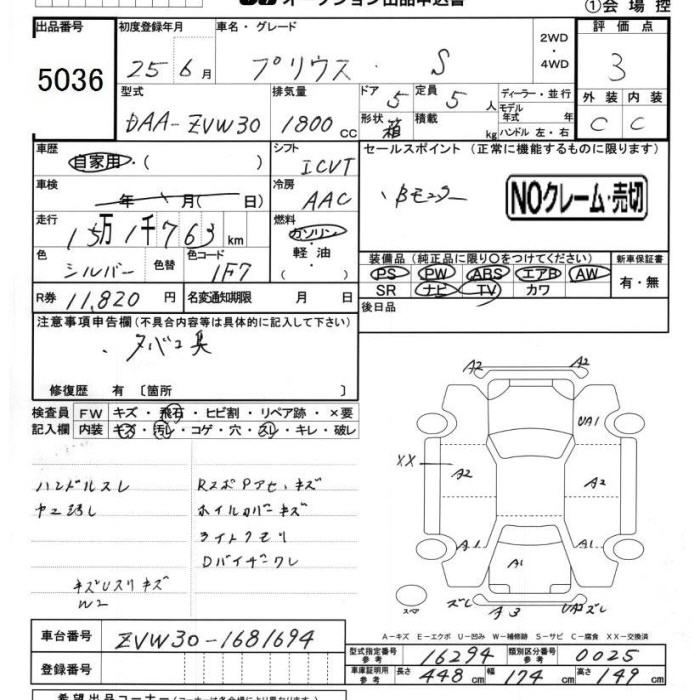 オークション出品申込書
①会場控
出品番号 初度登録年月 車名・グレード 2WD 評価点
5036 25 6月 プリウス S ・4WD 3
型式 排気量 ドア 5 定員 5人 ディーラー・並行 外装 内装
DAA-ZVW30 1800cc 形状 箱 積載 kg モデル年式 年 C C
ハンドル 左・右
車歴 自家用・( ) シフト ICVT セールスポイント (正常に機能するものに限ります)
車検 年 月(日) 冷房 AAC ・Bモニター NOクレーム・売切
走行 15万1千763km 燃料 ガソリン・軽油・( )
装備品(純正品に限り○をつけてください) 新車保証書
色 シルバー 色替 色コード 1F7 PS PW ABS エアB AW 有・無
SR ナビ TV カワ
R券 11,820円 名変通知期限 月 日 後日品
注意事項申告欄(不具合内容等は具体的に記入して下さい)
・タバコ臭
修復歴 有〔箇所 〕
検査員 FW キズ・飛石・ヒビ割・リペア跡・×要
記入欄 内装 キズ・汚レ・コゲ・穴・スレ・キレ・破レ
ハンドルスレ RスポPアセ、キズ
ホイルカバーキズ
ライトクモリ
Dバイザーワレ
キズUスリキズ
W2
A2 A2
UA1
XX A2 A2
A1 A1
A1
スペア ズレ A3 UA2ズレ
A-キズ E-エクボ U-凹み W-補修跡 S-サビ C-腐食 XX-交換済
車台番号 ZVW30-1681694
型式指定番号 参考 16294 類別区分番号 参考 0025
登録番号 車庫証明用 参考 長さ 448cm 幅 174cm 高さ 149cm
希望出品コーナー